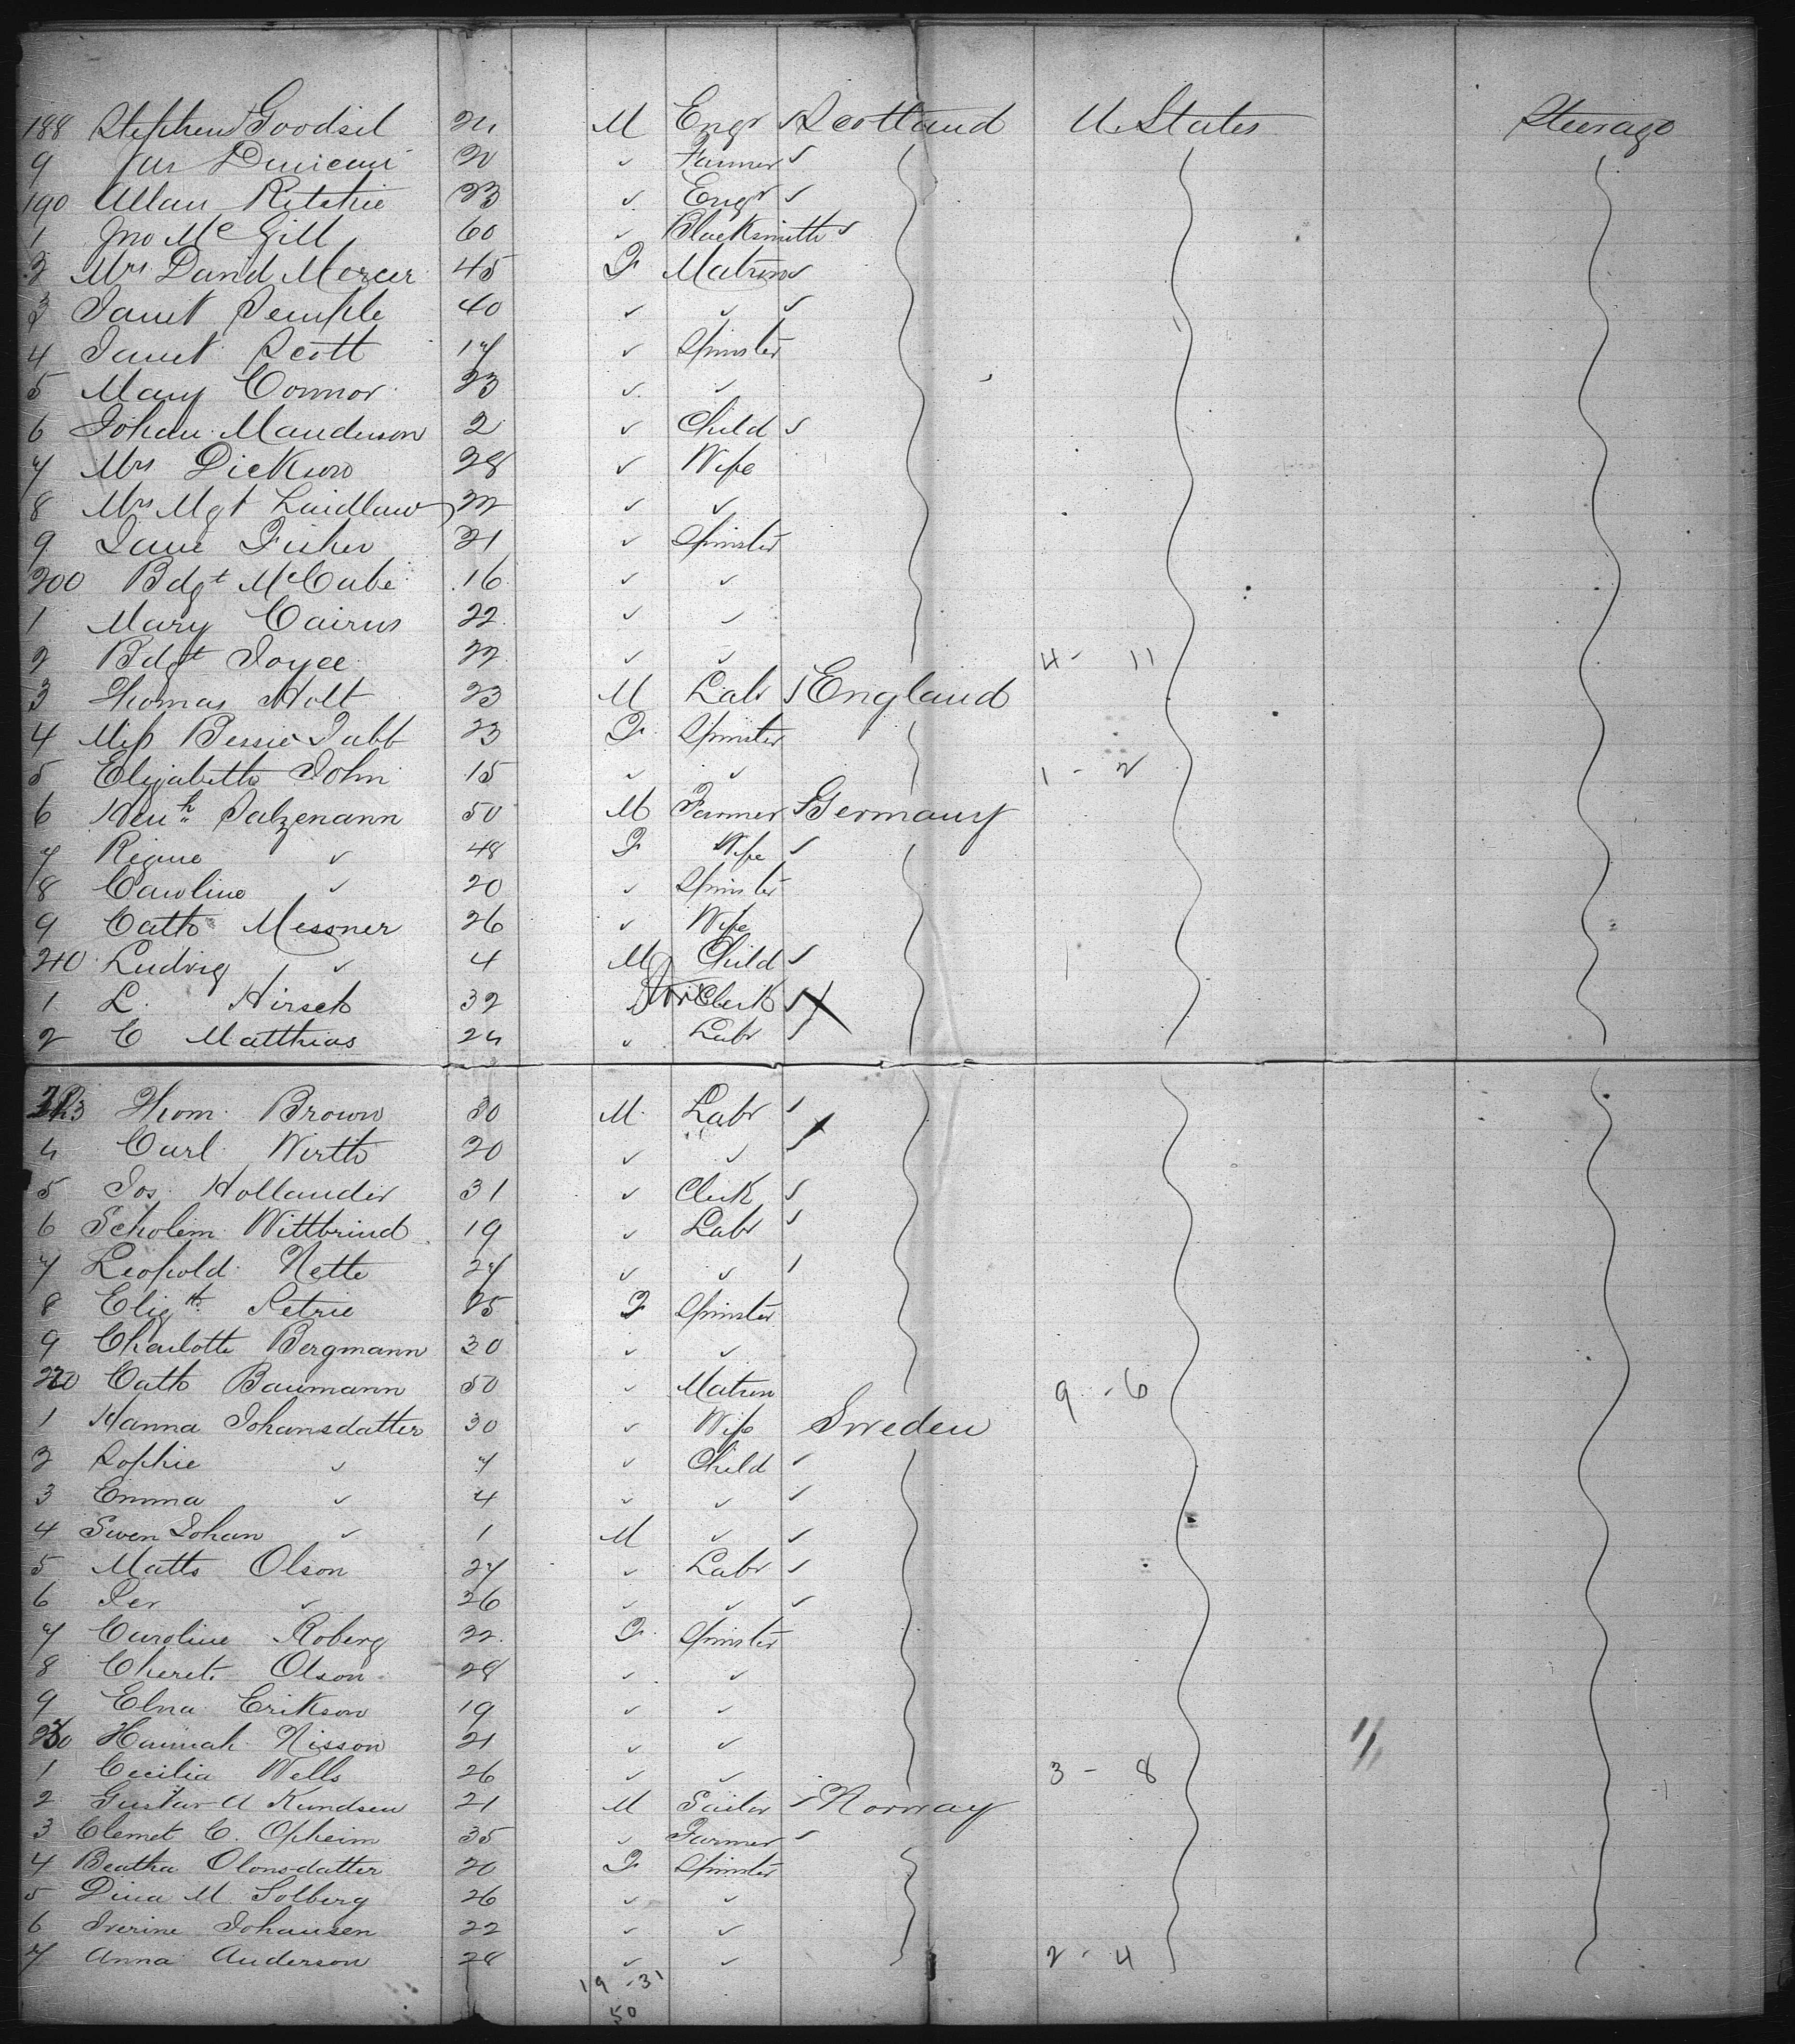 188 Stephen Goodsil 24 M Engr Scotland U. States Steerage
9 Jas Duncan 20 ✓ Farmer ✓
190 Allan Ritchie 23 ✓ Engr ✓
1 Jno Mc Gill 60 ✓ Blacksmith ✓
2 Mrs David Mercer 45 F Matron ✓
3 Janet Temple 40 ✓ ✓ ✓
4 Janet Scott 17 ✓ Spinster
5 Mary Connor 23 ✓ ✓
6 Johan Manderson 2 ✓ Child ✓
7 Mrs Dickson 28 ✓ Wife
8 Mrs Mgt Laidlaw 32 ✓ ✓
9 Jane Fisher 21 ✓ Spinster
200 Bdgt McCabe 16 ✓ ✓
1 Mary Cairns 22 ✓ ✓
2 Bdgt Joyce 22 ✓ ✓ 4 - 11
3 Thomas Holt 23 M Labr ✓ England
4 Miss Bessie Jabb 23 F Spinster
5 Elizabeth John 15 ✓ ✓ 1 - 2
6 Heinh Salzemann 50 M Farmer ✓ Germany
7 Regine ✓ 48 F Wife ✓
8 Caroline ✓ 20 ✓ Spinster
9 Cath Messner 26 ✓ Wife
210 Ludvig ✓ 4 M Child ✓
1 L. Hirsch 32 Clerk ✓ X
2 C Matthias 24 ✓ Labr ✓
213 Thom. Brown 30 M Labr ✓
4 Carl Wirth 20 ✓ ✓ ✓
5 Jos. Hollander 31 ✓ Clerk ✓
6 Scholem Wittbrind 19 ✓ Labr ✓
7 Leopold Nette 27 ✓ ✓ ✓
8 Elizth Petrie 25 F Spinster
9 Charlotte Bergmann 30 ✓ ✓
220 Cath Baumann 50 ✓ Matron 9 - 6
1 Hanna Johansdatter 30 ✓ Wife Sweden
2 Sophie ✓ 7 ✓ Child ✓
3 Emma ✓ 4 ✓ ✓ ✓
4 Swen Johan ✓ 1 M ✓ ✓
5 Matts Olson 27 ✓ Labr ✓
6 Per ✓ 26 ✓ ✓ ✓
7 Caroline Roberg 22 F Spinster
8 Cherst. Olson 28 ✓ ✓
9 Elna Erikson 19 ✓ ✓
230 Hannah Nisson 21 ✓ ✓
1 Cecilia Wells 26 ✓ ✓ 3 - 8
2 Gustav A Kundsen 21 M Sailor ✓ Norway
3 Clemet C. Opheim 35 ✓ Farmer ✓
4 Beatha Olonsdatter 20 F Spinster
5 Dina M Solberg 26 ✓ ✓
6 Iverine Johansen 22 ✓ ✓
7 Anna Anderson 28 ✓ ✓ 2 - 4
19 - 31
50